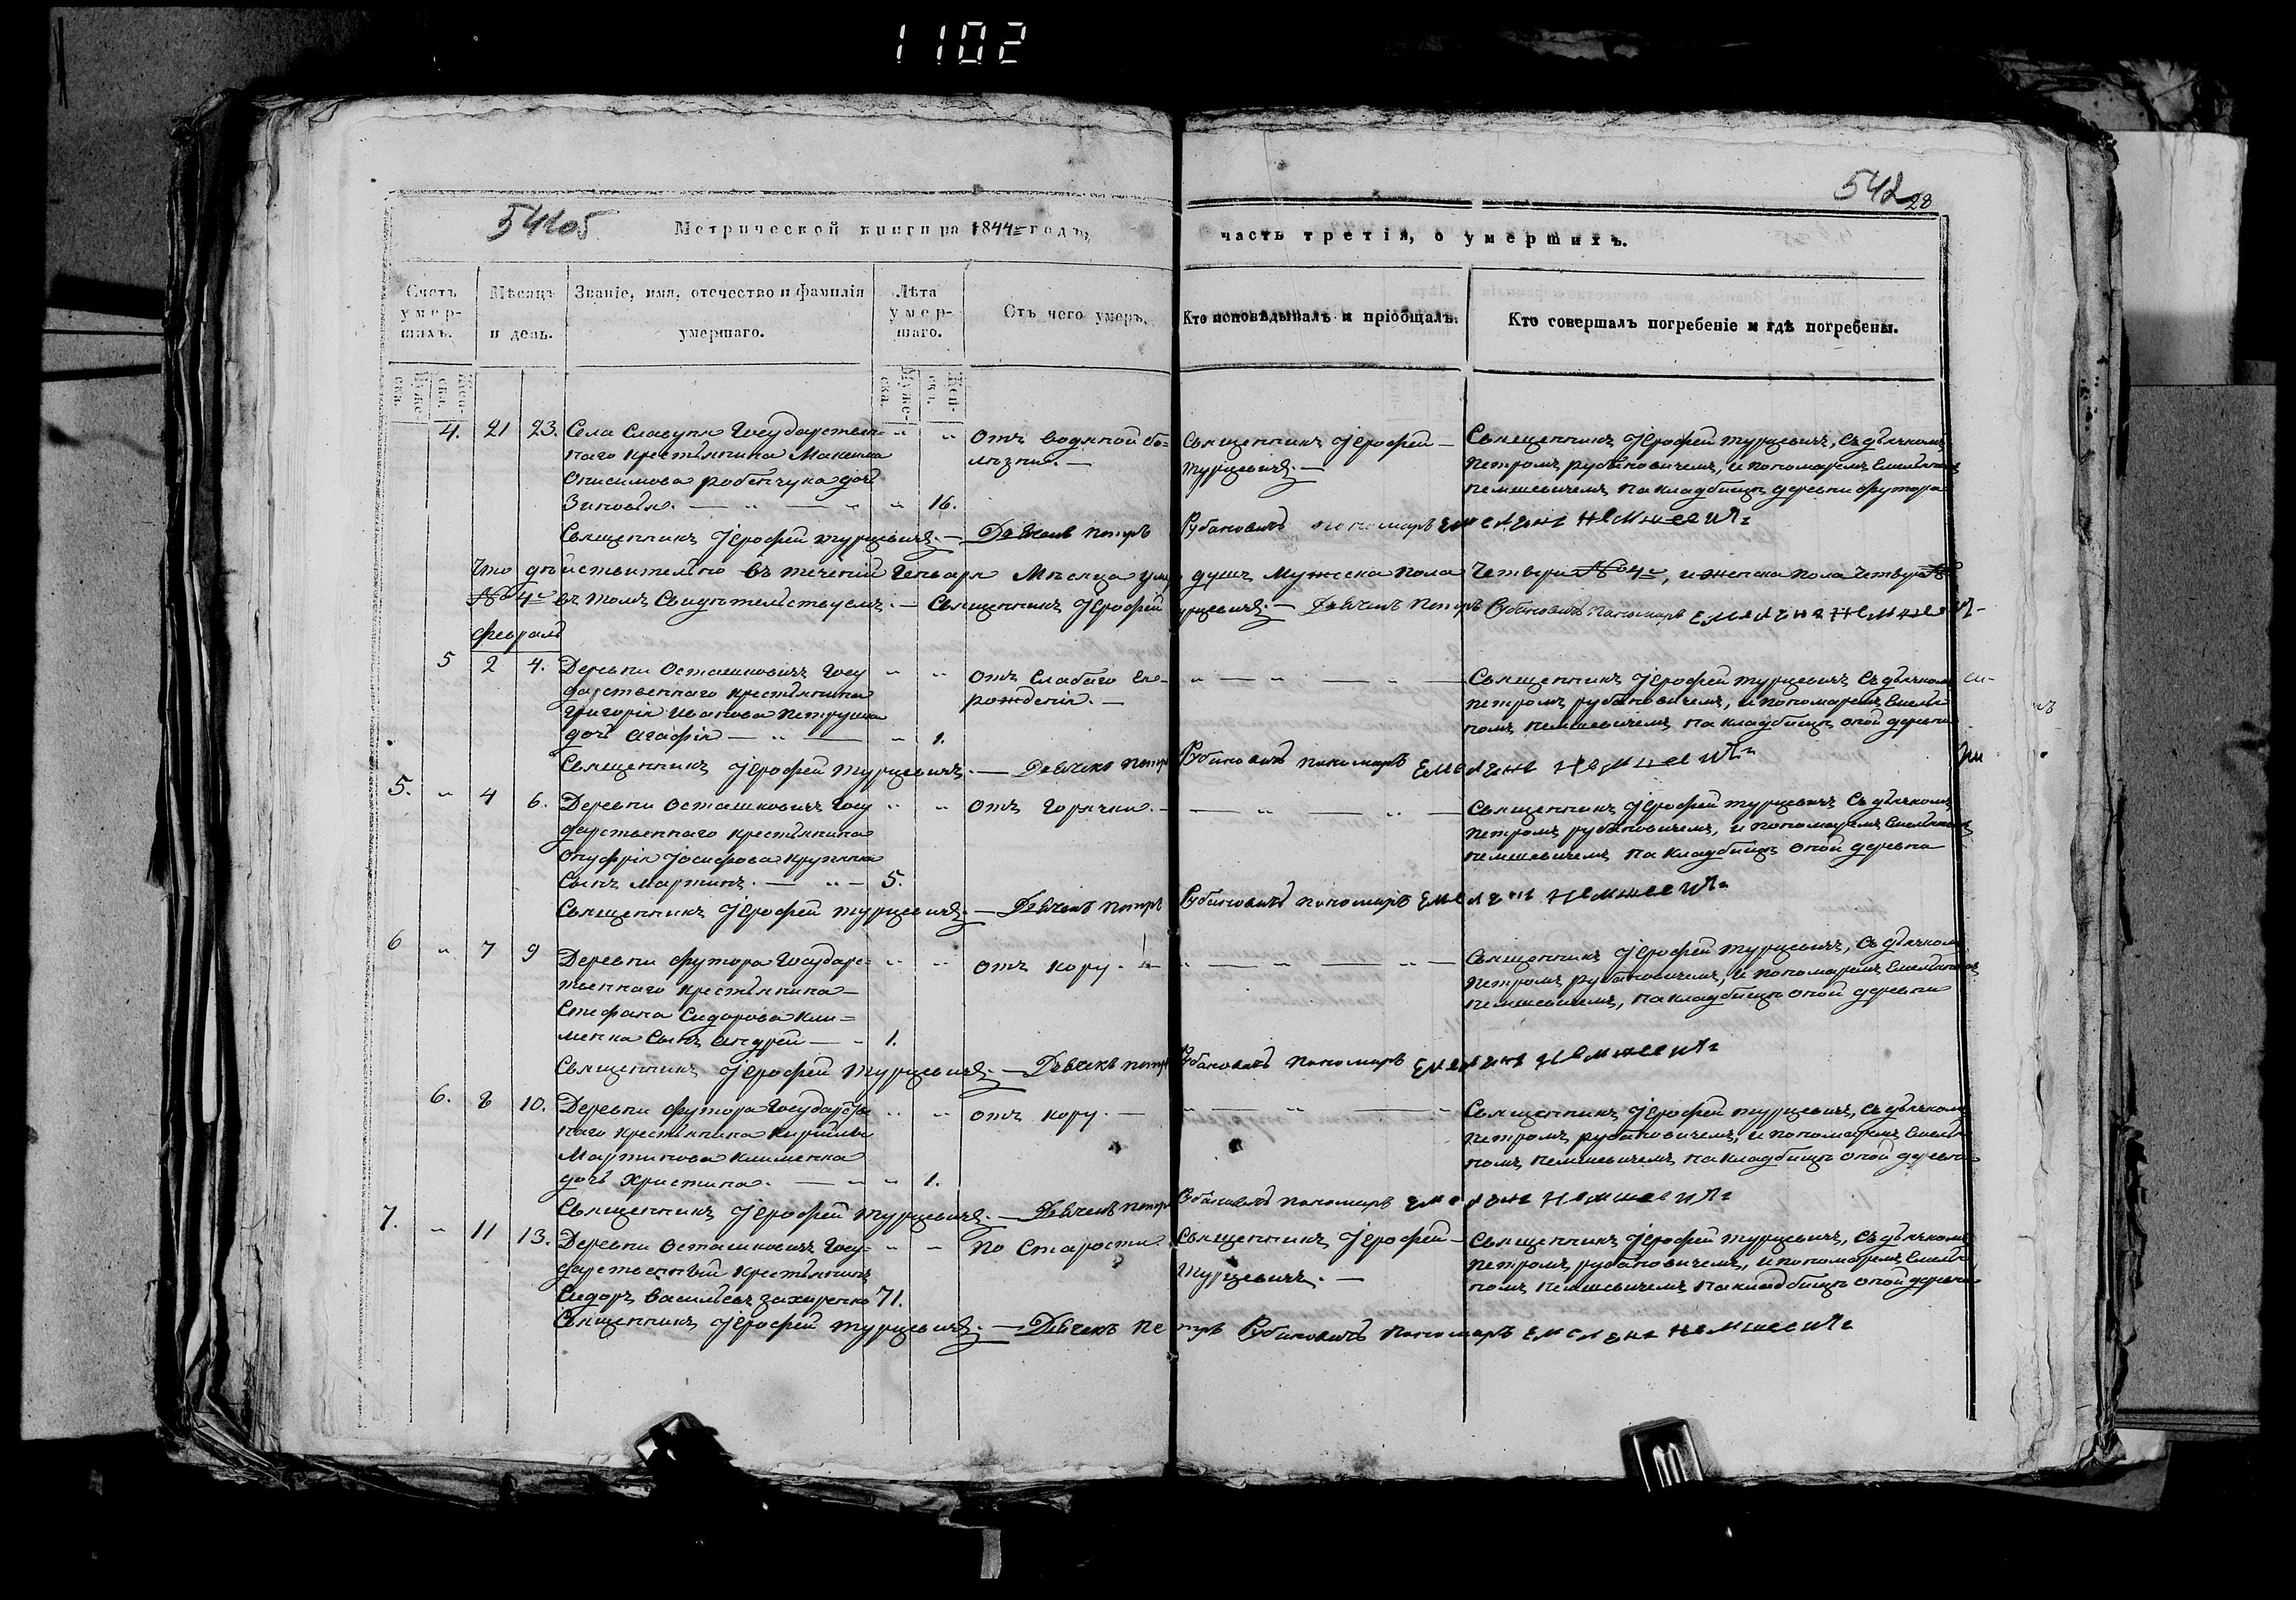 1102
542
28
Метрической книги на 1844 годъ,
часть третія, о умершихъ.
Счетъ умер- шихъ.
Мѣсяцъ и день.
Званіе, имя, отечество и фамилія умершаго.
Лѣта умер- шаго.
Отъ чего умеръ.
Кто исповѣдывалъ и пріобщалъ.
Кто совершалъ погребеніе и гдѣ погребены.
Муже- ска.
Жен- ска.
Муже- ска.
Жен- ска.
4. 21 23. Села Государствен-
наго крестьянина
Онисимова дочь
Зиновія. — " — " " 16.
Отъ водяной бо-
лѣзни. —
Священникъ Іерофей —
Турцевичъ. —
Священникъ Іерофей Турцевичъ, съ дьячкомъ
Петромъ Рубановичемъ, и пономаремъ
Немшевичемъ на кладбищѣ деревни Футора
Священникъ Іерофей Турцевичъ. — Дьячекъ Петръ Рубановичъ пономарь Емелянъ Немшевичъ
Что дѣйствительно въ теченіи Генваря Мѣсяца душъ Мужеска пола Четверо № 4, и женска пола Четверо
№ 4 въ томъ Свидѣтельствуемъ. — Священникъ Іерофей Турцевичъ. — Дьячекъ Петръ Рубановичъ пономарь Емелянъ
Февраль
5 2 4. Деревни Осташковичъ Госу
дарственнаго крестьянина
Григорія Иванова Петрушки
дочь Агафія — " — " 1.
Отъ Слабаго Ея
рожденія. —
Священникъ Іерофей Турцевичъ съ дьячкомъ
Петромъ Рубановичемъ, и пономаремъ Емелья
номъ Немшевичемъ на кладбищѣ оной деревни
Священникъ Іерофей Турцевичъ. — Дьячекъ Петръ Рубановичъ пономарь Емелянъ Немшевичъ
5. " 4 6. Деревни Осташковичъ Госу
дарственнаго крестьянина
Онуфрія Іосифова
Сынъ Мартинъ. — " — 5.
Отъ Горячки. —
Священникъ Іерофей Турцевичъ съ дьячкомъ
Петромъ Рубановичемъ, и пономаремъ
Немшевичемъ на кладбищѣ оной деревни
Священникъ Іерофей Турцевичъ. — Дьячекъ Петръ Рубановичъ пономарь Емелянъ Немшевичъ
6 " 7 9 Деревни Футора Государс-
твеннаго крестьянина —
Стефана Сидорова Кли=
менка Сынъ Андрей — - 1.
Отъ кору. —
Священникъ Іерофей Турцевичъ, съ дьячкомъ
Петромъ Рубановичемъ, и пономаремъ
Немшевичемъ, на кладбищѣ оной деревни
Священникъ Іерофей Турцевичъ. — Дьячекъ Петръ Рубановичъ пономарь Емелянъ Немшевичъ
6. 8 10. Деревни Футора Государстве
наго крестьянина Кирилы
Мартинова Клименка
дочь Христина. — " " 1.
Отъ кору. —
Священникъ Іерофей Турцевичъ, съ дьячкомъ
Петромъ Рубановичемъ, и пономаремъ Емелья
номъ Немшевичемъ на кладбищѣ оной деревни
Священникъ Іерофей Турцевичъ. — Дьячекъ Петръ Рубановичъ пономарь Емелянъ Немшевичъ
7. " 11 13. Деревни Осташковичъ Госу-
дарственный крестьянинъ
Сидоръ Васильевъ Захаренко 71.
По Старости.
Священникъ Іерофей —
Турцевичъ. —
Священникъ Іерофей Турцевичъ, съ дьячкомъ
Петромъ Рубановичемъ, и пономаремъ Емелья
номъ Немшевичемъ на кладбищѣ оной деревни
Священникъ Іерофей Турцевичъ. — Дьячекъ Петръ Рубановичъ пономарь Емелянъ Немшевичъ